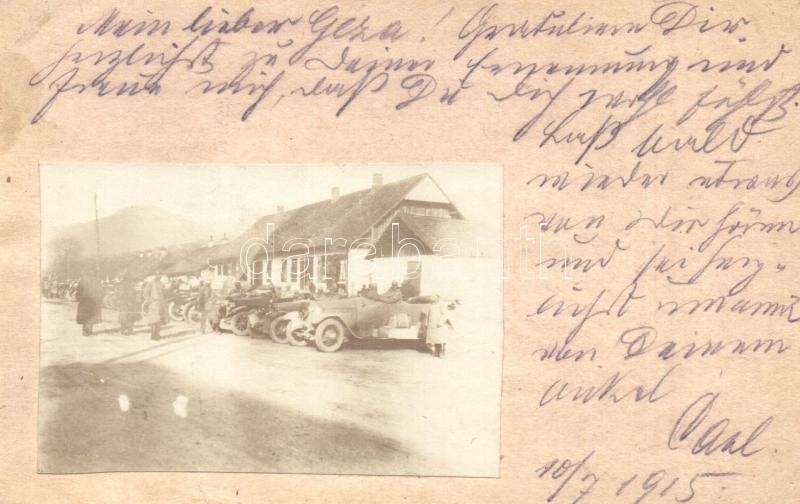 Mein lieber Géza! Gratuliere Dir
herzlichst zu Deiner Ernennung und
freue mich, daß Du Dich wohl fühlst.
Laß bald
wieder etwas
von Dir hören
und sei herz-
lichst umarmt
von Deinem
Onkel
Carl.
10/7 1915.
darabanth